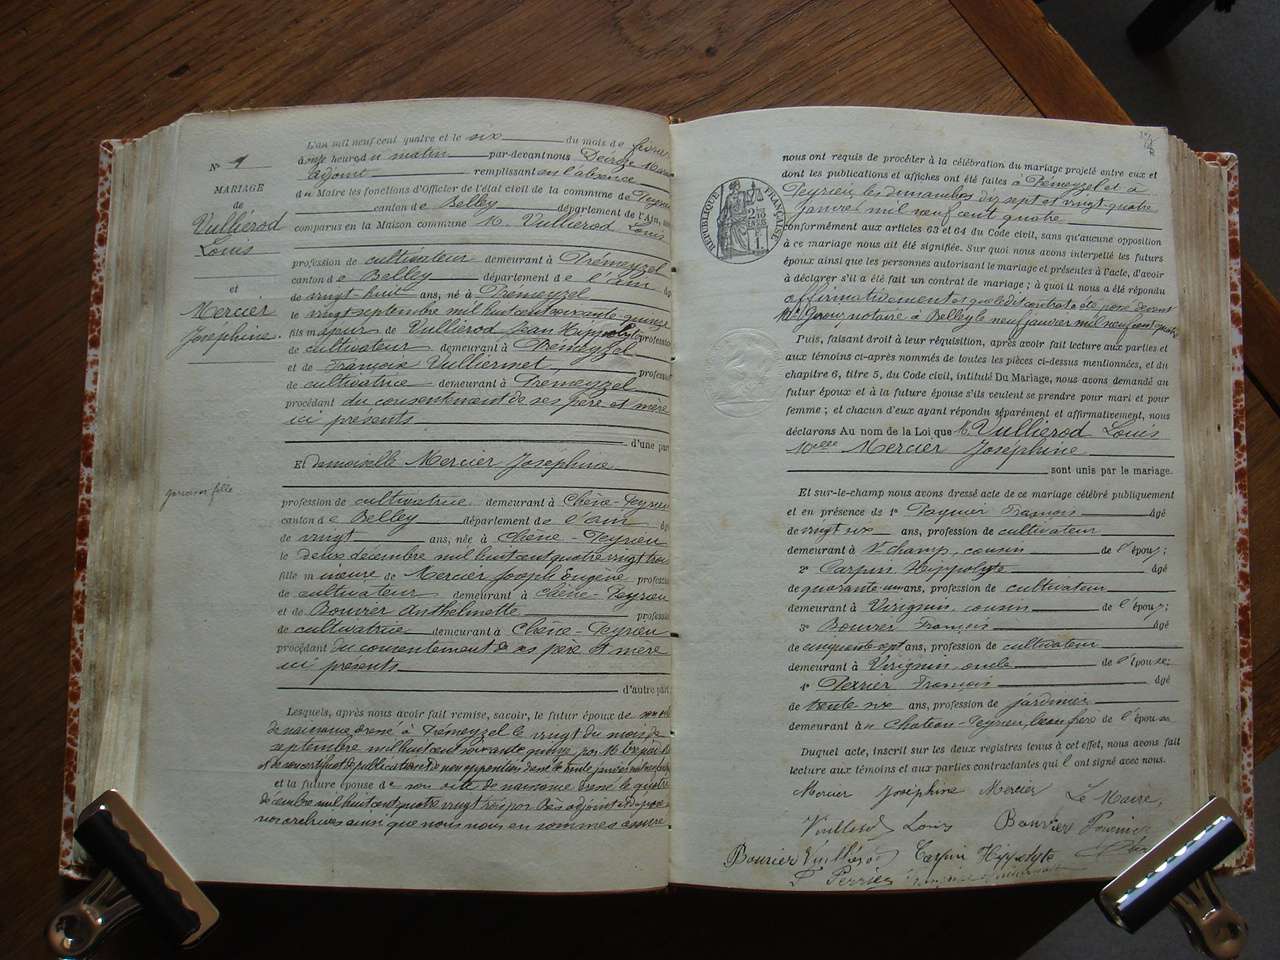 L'an mil neuf cent quatre et le six du mois de février
à onze heures du matin par-devant nous
adjoint remplissant en l'absence
du Maire les fonctions d'Officier de l'état civil de la commune de Peyrieu
canton de Belley département de l'Ain,
comparus en la Maison commune M. Vullierod Louis
N° 1
MARIAGE
de
Vulliérod
Louis
et
Mercier
Joséphine
profession de cultivateur demeurant à Prémeyzel
canton de Belley département de l'ain âgé
de vingt-huit ans, né à Prémeyzel
le vingt septembre mil huit cent soixante quinze
fils majeur de Vullierod Jean Hippolyte profession
de cultivateur demeurant à Prémeyzel
et de Françoise Vulliermet, profession
de cultivatrice demeurant à Prémeyzel
procédant du consentement de ses père et mère
ici présents
d'une part
Et demoiselle Mercier Joséphine
garçon fille
profession de cultivatrice demeurant à Chêne-Peyrieu
canton de Belley département de l'ain âgé
de vingt ans, née à Chêne-Peyrieu
le deux décembre mil huit cent quatre vingt trois
fille mineure de Mercier Joseph Eugène profession
de cultivateur demeurant à Chêne-Peyrieu
et de Bouvier Anthelmette profession
de cultivatrice demeurant à Chêne-Peyrieu
procédant du consentement de ses père et mère
ici présents
d'autre part
Lesquels, après nous avoir fait remise, savoir, le futur époux de son acte
de naissance dressé à Prémeyzel le vingt du mois de
septembre mil huit cent soixante quinze par M.
et de son certificat de publication et de non opposition dressé le trente janvier
et la future épouse de son acte de naissance dressé le quatre
décembre mil huit cent quatre vingt trois par adjoint et déposé
nos archives ainsi que nous nous en sommes assuré
nous ont requis de procéder à la célébration du mariage projeté entre eux et
dont les publications et affiches ont été faites à Prémeyzel et à
Peyrieu les dimanches dix sept et vingt quatre
janvier mil neuf cent quatre
RÉPUBLIQUE FRANÇAISE
conformément aux articles 63 et 64 du Code civil, sans qu'aucune opposition
à ce mariage nous ait été signifiée. Sur quoi nous avons interpellé les futurs
époux ainsi que les personnes autorisant le mariage et présentes à l'acte, d'avoir
à déclarer s'il a été fait un contrat de mariage ; à quoi il nous a été répondu
affirmativement et que ledit contrat a été passé devant
Me notaire à Belley le neuf janvier mil neuf cent quatre
Puis, faisant droit à leur réquisition, après avoir fait lecture aux parties et
aux témoins ci-après nommés de toutes les pièces ci-dessus mentionnées, et du
chapitre 6, titre 5, du Code civil, intitulé Du Mariage, nous avons demandé au
futur époux et à la future épouse s'ils veulent se prendre pour mari et pour
femme ; et chacun d'eux ayant répondu séparément et affirmativement, nous
déclarons Au nom de la Loi que M. Vullierod Louis
Melle Mercier Joséphine
sont unis par le mariage.
Et sur-le-champ nous avons dressé acte de ce mariage célébré publiquement
et en présence de 1° François âgé
de vingt six ans, profession de cultivateur
demeurant à St champ, cousin de l'époux;
2° Carpin Hippolyte âgé
de quarante ans, profession de cultivateur
demeurant à Virignin, cousin de l'époux;
3° Bouvier François âgé
de cinquante sept ans, profession de cultivateur
demeurant à Virignin, oncle de l'épouse;
4° Perrier François âgé
de trente six ans, profession de jardinier
demeurant à Chateau-Peyrieu, beau frère de l'épouse
Duquel acte, inscrit sur les deux registres tenus à cet effet, nous avons fait
lecture aux témoins et aux parties contractantes qui l'ont signé avec nous.
Mercier Joséphine Mercier Le Maire,
Vullierod Louis Bouvier
Bouvier Vulliérod Carpin Hippolyte
F Perrier